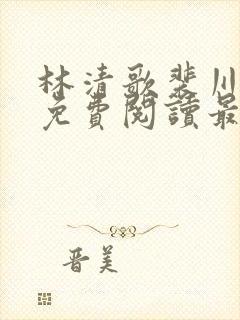 林清歌裴川
免費閱讀最
晋美